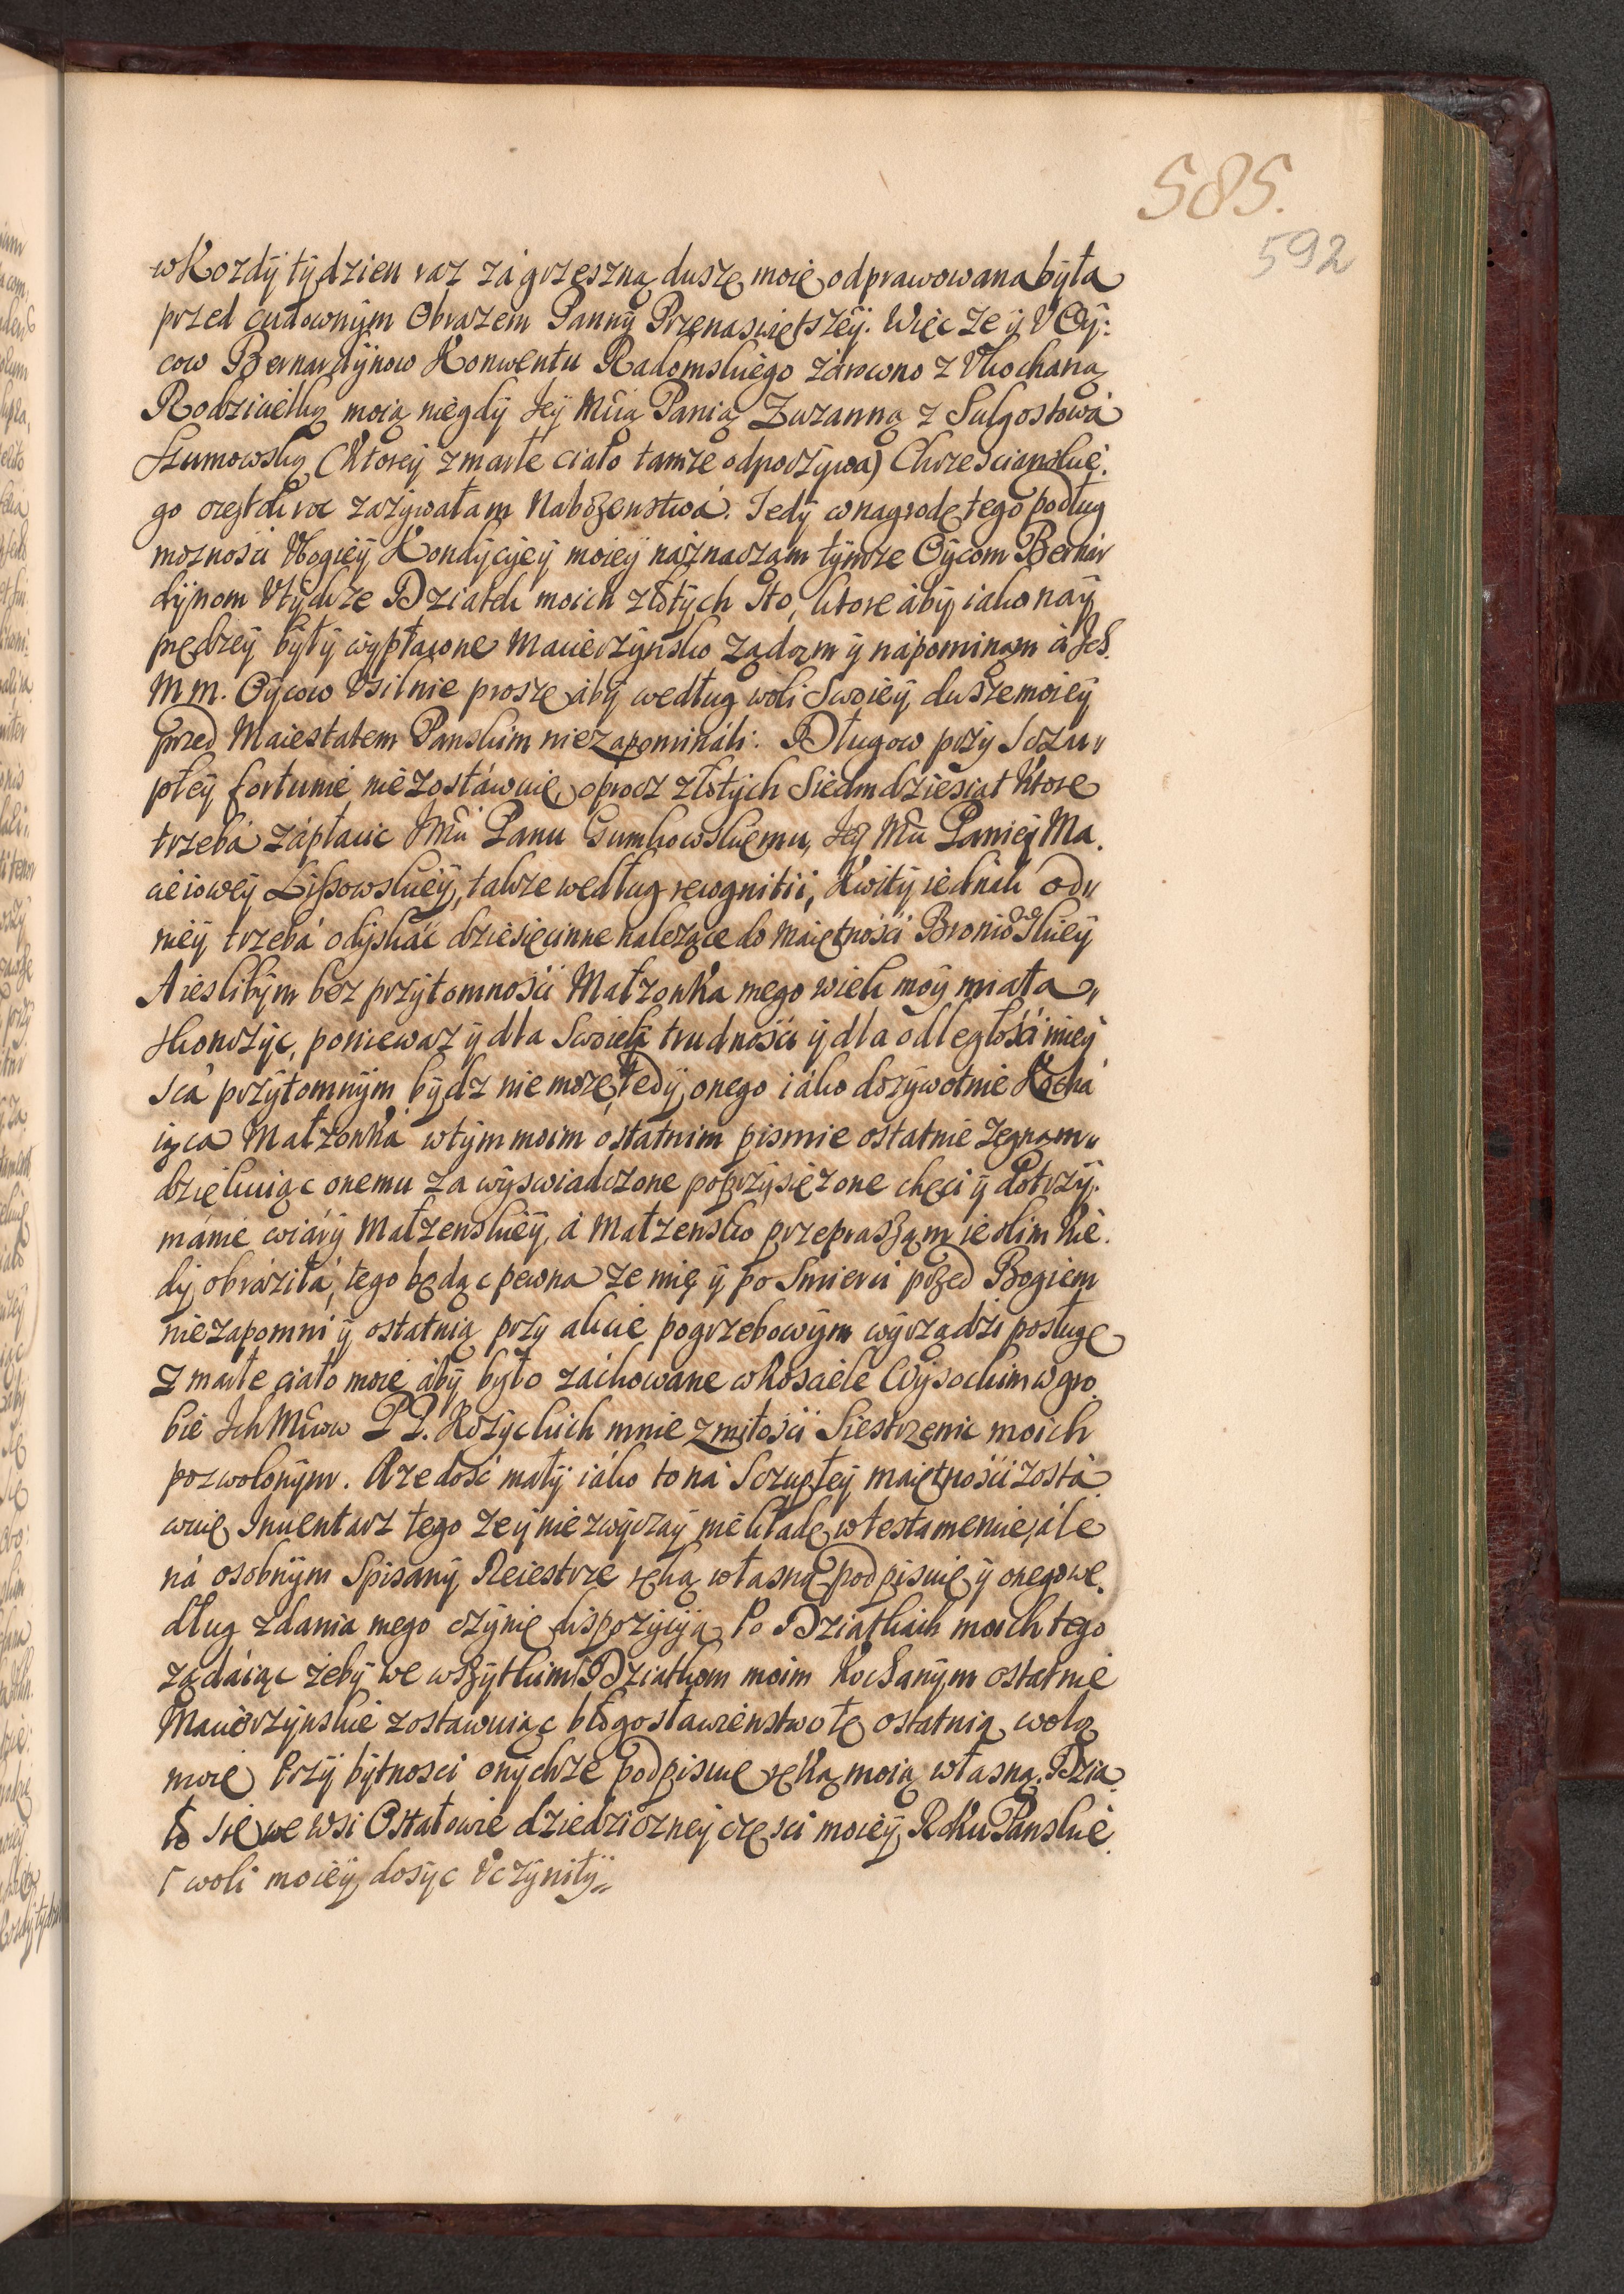 585.
592
w Kozdÿ tÿdzien raz zá grzeszną duszę moię odprawowana była
przed cudownÿm Obrazem Pannÿ Przenaswiętszeÿ. Więc ze ÿ V Oÿ:
cow Bernardÿnow Konwentu Radomskiego zárowno z Vkochaną
Rodzicielką moią niegdÿ Jeÿ Mcią Panią Zuzanną z Sulgostowá
Szumowską (Ktoreÿ zmarłe ciało tamze odpoczÿwa) Chrzescianskie.
go częstokroc zazÿwałam Nabozenstwá. Tedÿ w nagrodę tego podług
moznosci Vbogieÿ Kondÿcÿeÿ moieÿ náznaczam tÿmze Oÿcom Bernár
dÿnom Vtÿchze Dziatek moich złotÿch sto, ktore ábÿ iako naÿ
prędzeÿ bÿłÿ wÿpłacone Macierzÿnsko ządam ÿ nápominam á Ich
M M. Oÿcow Vsilnie proszę ábÿ według woli Swoieÿ duszemoieÿ
przed Maiestatem Panskim niezapomináli. Długow przÿ Sczu„
płeÿ fortunie niezostáwuię, oprocz złotÿch Siedmdziesiąt Ktore
trzebá zápłacic Jmci Panu Gumkowskiemu, Jeÿ Mci Panieÿ Ma.
cieioweÿ Lissowskieÿ, takze według recognitii, Kwitÿ iednak od„
nieÿ trzebá odÿskác dziesięcinne nalezące do Maiętnosci Bronio skieÿ
A ieslibÿm bez przÿtomnosci Małzonka mego wiek moÿ miała„
skonczÿc, poniewaz ÿ dla Swoich trudnosci ÿ dla odległosci mieÿ
scá przÿtomnÿm bÿdz nie moze, tedÿ onego iáko dozÿwotnie Kochá
iąca Małzonká w tÿm moim ostatnim pismie ostatnie zegnam„
dziękuiąc onemu za wÿswiadczone poprzÿsięzone chęci ÿ dotrzÿ.
mánie wiárÿ Małzenskieÿ, á Małzensko przepraszam ieslim kie.
dÿ obráziłá, tego będąc pewna ze mię ÿ po Smierci przed Bogiem
niezapomni ÿ ostatnią przÿ akcie pogrzebowÿm wÿrządzi posługę
Zmarłe ciało moie ábÿ bÿło záchowane w Kosciele Wÿsockim w gro
bie Ich Mciow P P. Kozÿckich mnie z miłosci Siestrzenic moich
pozwolonÿm. A ze dosć małÿ iáko to ná Sczupłeÿ maiętnosci zostá
wuię Inuentarz tego zeÿ niezwÿczaÿ nie kładę w testamencie, ále
ná osobnÿm Spisanÿ Reiestrze ręką własną podpisuię ÿ onego we.
dług zdania mego czÿnię dispozÿcÿą. Po Dziatkach moich tego
ządáiąc zebÿ we wszÿtkim⌈ Dziatkom moim Kochanÿm ostatnie
Macierzÿnskie zostawuiąc błogosławienstwo tę ostatnią wolą
moię Przÿ bÿtnosci onÿchze podpisuię ręką moią własną. Dzia
ło się we Wsi Ostałowie dziedziczneÿ częsci moieÿ Roku Panskie.
⌈ woli moieÿ dosÿc Vczÿniłÿ„